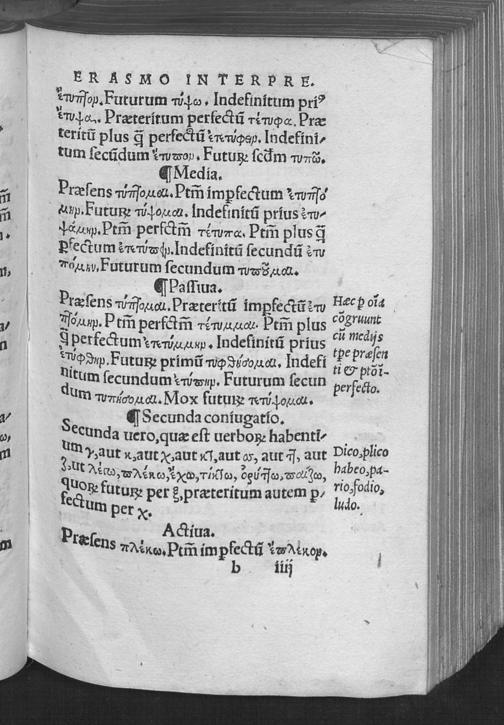 ERASMO INTERPRE.
ἔτυπτον. Futurum τύψω. Indefinitum priꝰ
ἔτυψα. Præteritum perfectũ τέτυφα. Præ
teritũ plus q̃ perfectũ ἐτετύφειν. Indefini⸗
tum secũdum ἔτυπον. Futurꝝ scd̃m τυπῶ.
¶ Media.
Præsens τύπτομαι. Ptm̃ imꝑfectum ἐτυπτό
μην. Futurꝝ τύψομαι. Indefinitũ prius ἐτυ⸗
ψάμην. Ptm̃ perfctm̃ τέτυπα. Ptm̃ plus q̃
ꝑfectum ἐτετύπειν. Indefinitũ secundũ ἐτυ
πόμην. Futurum secundum τυποῦμαι.
¶ Passiua.
Præsens τύπτομαι. Præteritũ impfectũ ἐτυ
πτόμην. Ptm̃ perfctm̃ τέτυμμαι. Ptm̃ plus
q̃ perfectum ἐτετύμμην. Indefinitũ prius
ἐτύφθην. Futurꝝ primũ τυφθήσομαι. Indefi
nitum secundum ἐτύπην. Futurum secun
dum τυπήσομαι. Mox futurꝝ τετύψομαι.
Hæc ꝑ oĩa
cõgruunt
cũ medijs
tꝑe præsen
ti & ptõi⸗
perfecto.
¶ Secunda coniugatio.
Secunda uero, quæ est uerborꝝ habenti⸗
um γ, aut κ, aut χ, aut κτ, aut σσ, aut ττ, aut
ζ, ut λέγω, πλέκω, ἔχω, τίκτω, ὀρύττω, παίζω,
quorꝝ futurꝝ per ξ, præteritum autem ꝑ⸗
fectum per χ.
Dico, plico
habeo, pa⸗
rio, fodio,
ludo.
Actiua.
Præsens πλέκω. Ptm̃ imꝑfectũ ἔπλεκον.
b iiij